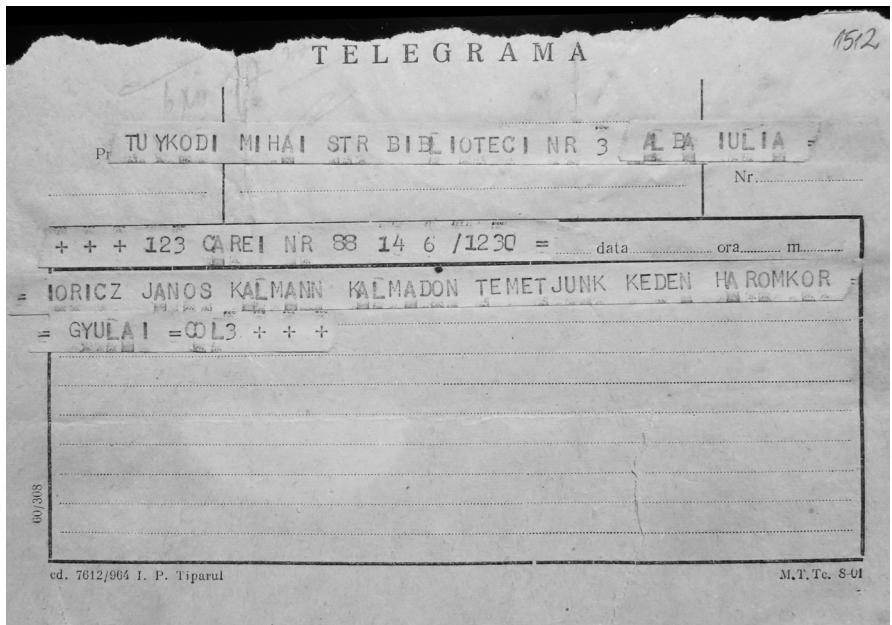 1512
TELEGRAMA
Pr TUYKODI MIHAI STR BIBLIOTECI NR 3 ALBA IULIA =
Nr.
+ + + 123 CAREI NR 88 14 6 /1230 = data ora m
= IORICZ JANOS KALMANN KALMADON TEMETJUNK KEDEN HAROMKOR =
= GYULAI =COL3 + + +
60/308
cd. 7612/964 I. P. Tiparul M.T.Tc. 8-01